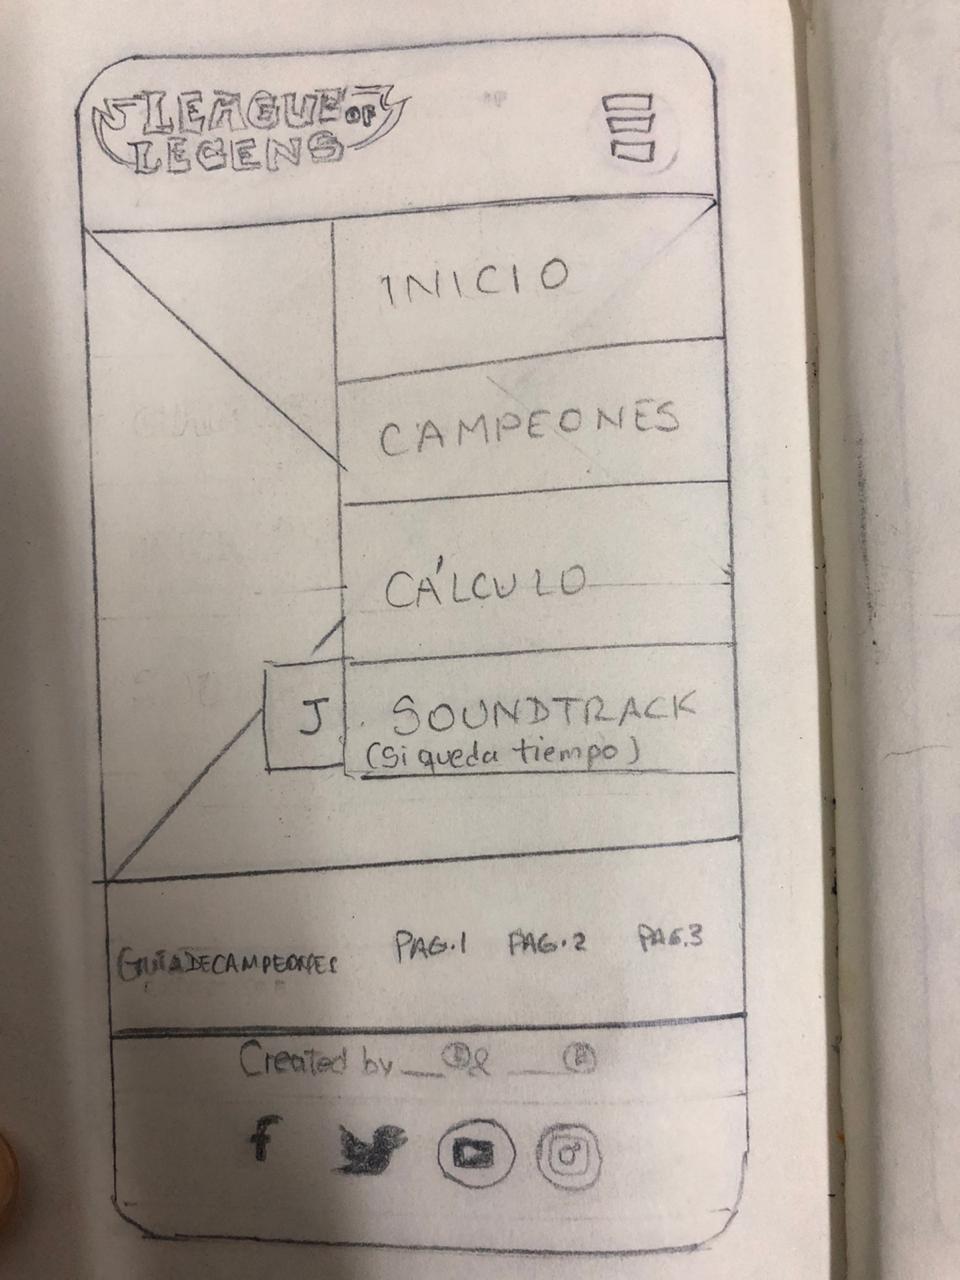 LEAGUE OF
LEGENS
INICIO
CAMPEONES
CÁLCULO
J SOUNDTRACK
(Si queda tiempo)
GUIA DE CAMPEONES PAG.1 PAG.2 PAG.3
Created by __ & __
f